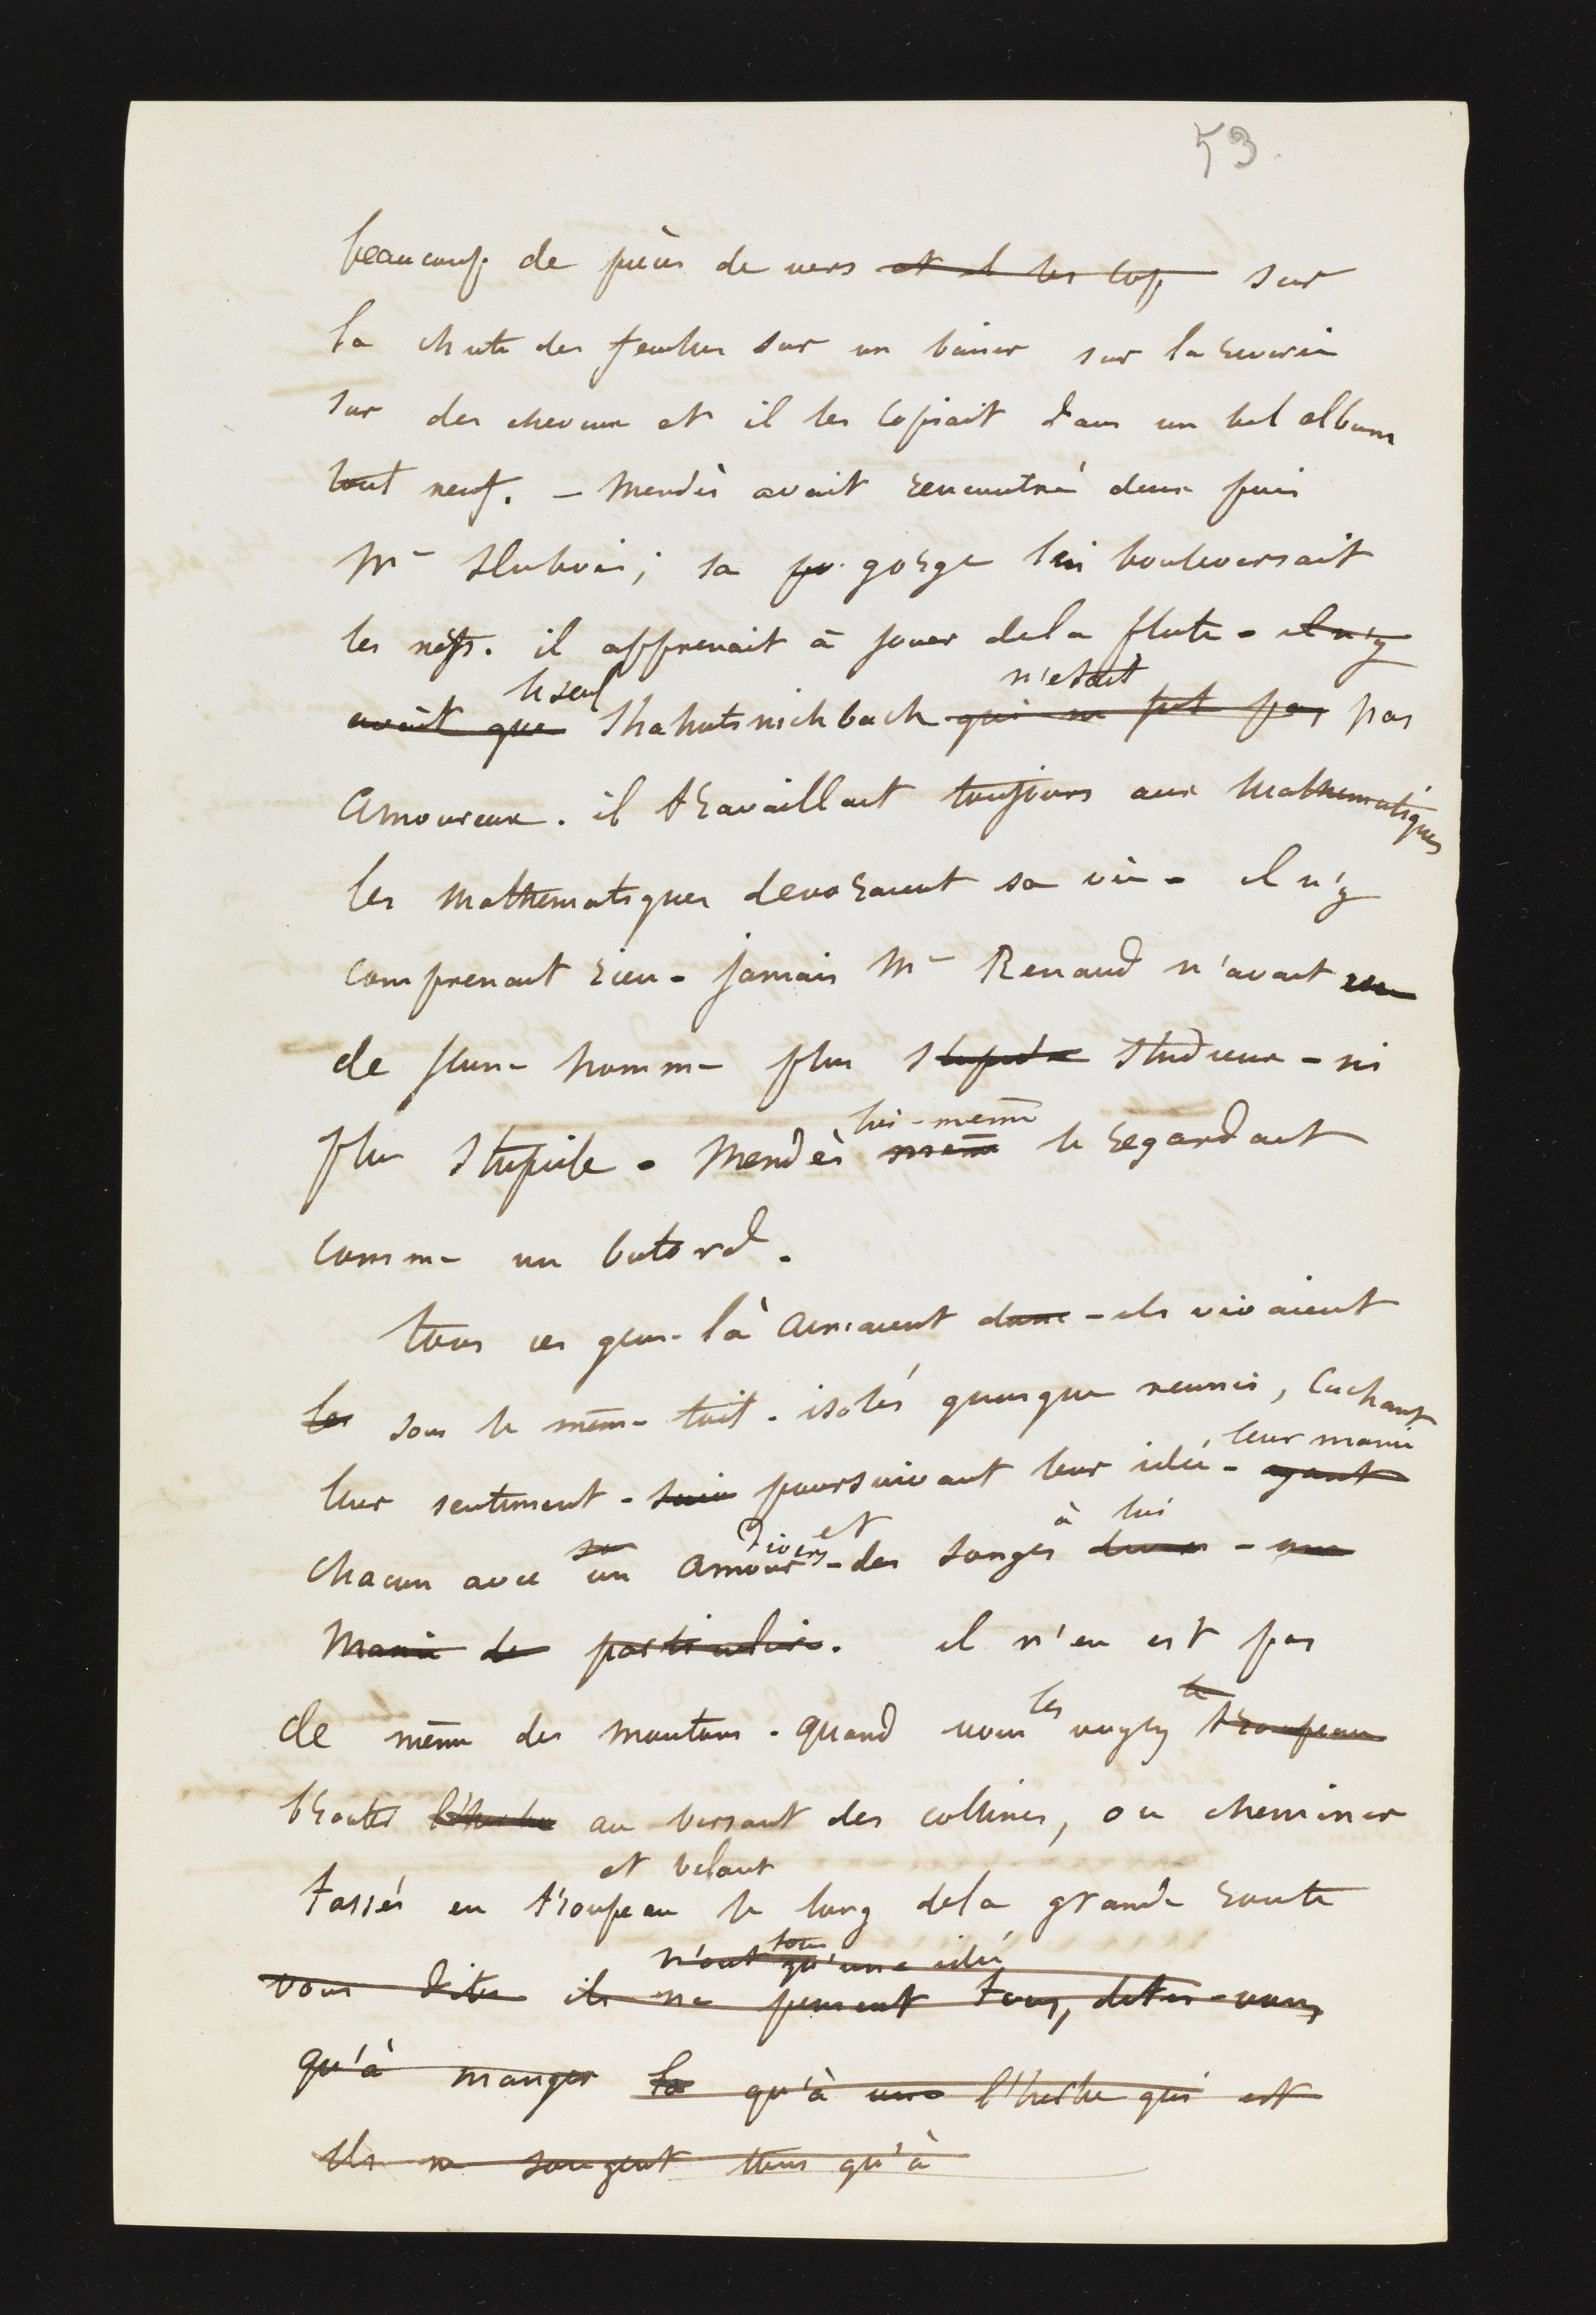 53.
beaucoup de pièces de vers et il les cop sur
la chute des feuilles sur un baiser sur la reverie
sur des cheveux et il les copiait dans un bel album
tout neuf. – Mendès avait rencontré deux fois
Me Dubois; sa po gorge lui bouleversait
les nefs. il apprenait à jouer de la flute – il n'y
le seul n'etait
avait que Shahutsnichbach qui ne fut pas pas
amoureux. il travaillait toujours aux mathematiques
les mathematiques devoraient sa vie – il n'y
comprenait rien – jamais Mr Renaud n'avait vu
de jeune homme plus stupide studieux – ni
plus stupide – Mendès même le regardait
lui-même
comme un butord.
tous ces gens-là aimaient donc – ils vivaient
les sous le même toit. isolés quoique reunis, cachant
leur sentiment – suiv poursuivant leur idée – ayant
leur manie
chacun avec son un amour – des songes – une
divers et à lui
manie de particulière. il n'en est pas
de même des moutons. quand vous les voyez le troupeau
brouter l'herbe au versant des collines, ou cheminer
et belant
tassés en troupeau le long de la grande route
n'ont tous qu'une idée
vous dites ils ne pensent tous, dites-vous
qu'à manger la qu'à une l'herbe qui est
ils ne songent tous qu'à